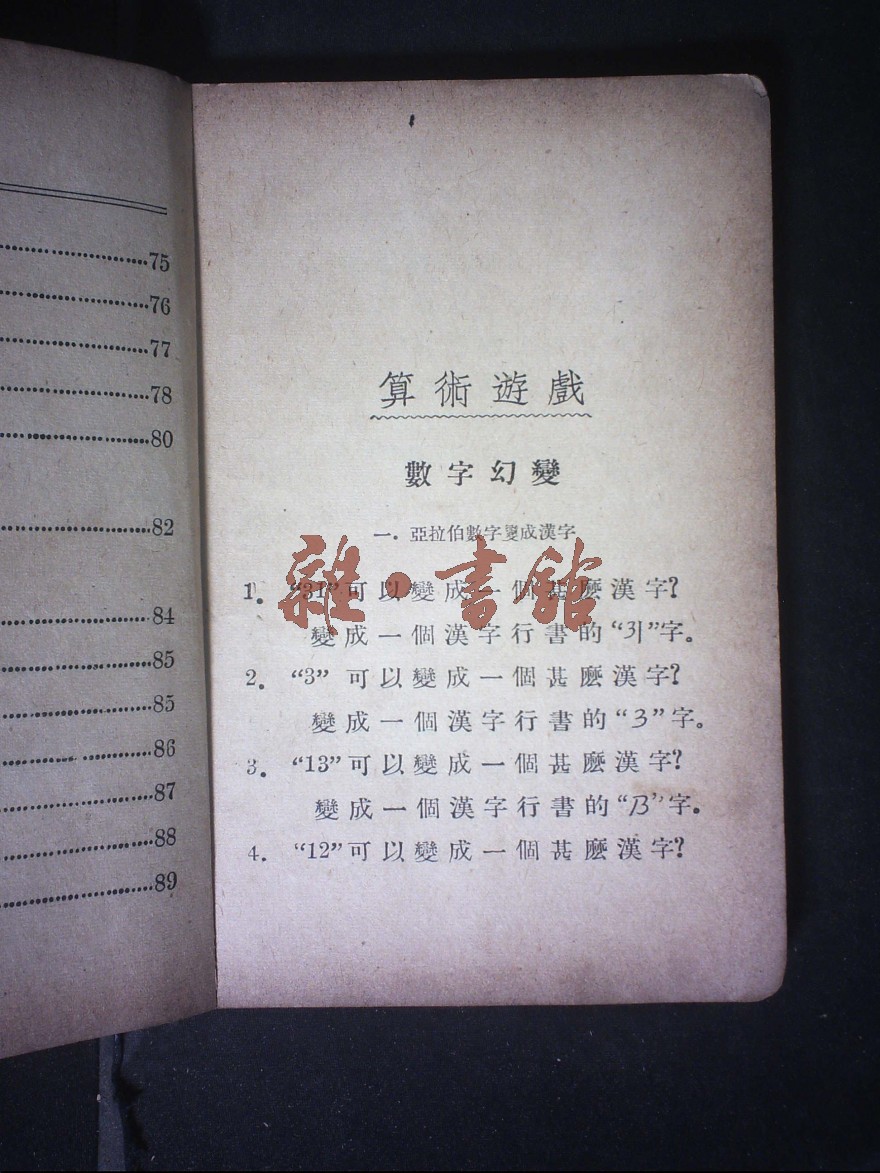 75
76
77
78
80
82
84
85
85
86
87
88
89
算術遊戲
數字幻變
一.亞拉伯數字變成漢字
1。“31”可以變成一個甚麽漢字?
變成一個漢字行書的“引”字。
2。“3”可以變成一個甚麽漢字?
變成一個漢字行書的“3”字。
3。“13”可以變成一個甚麽漢字?
變成一個漢字行書的“乃”字。
4.“12”可以變成一個甚麽漢字?
雜·書館